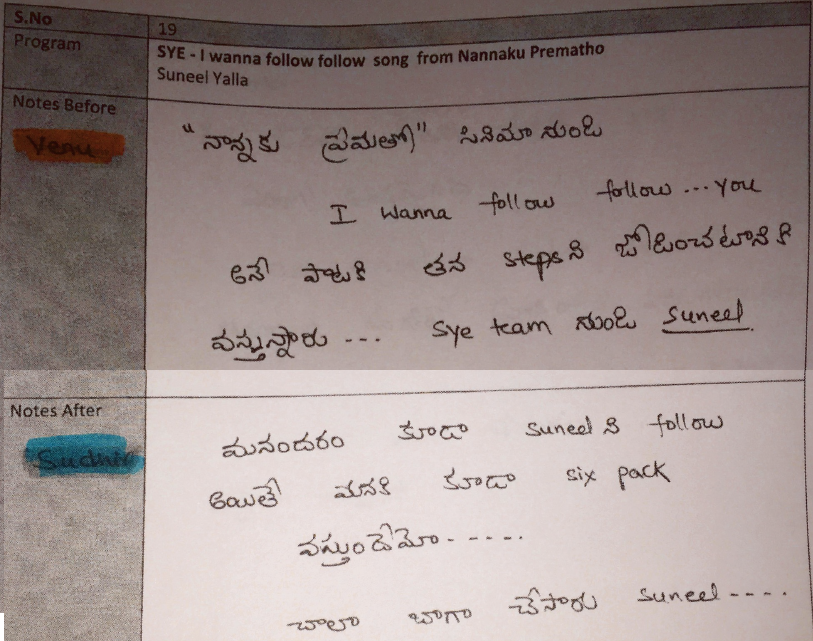 S.No
19
Program
SYE - I wanna follow follow song from Nannaku Prematho
Suneel Yalla
Notes Before
Venu
"నాన్నకు ప్రేమతో" సినిమా నుండి
I wanna follow follow ... you
అనే పాటకి తన steps ని జోడించటానికి
వస్తున్నారు --- Sye team నుండి Suneel
Notes After
Sudhir
మనందరం కూడా Suneel ని follow
అయితే మనకి కూడా six pack
వస్తుందేమో - - - - -
చాలా బాగా చేసారు Suneel - - - -